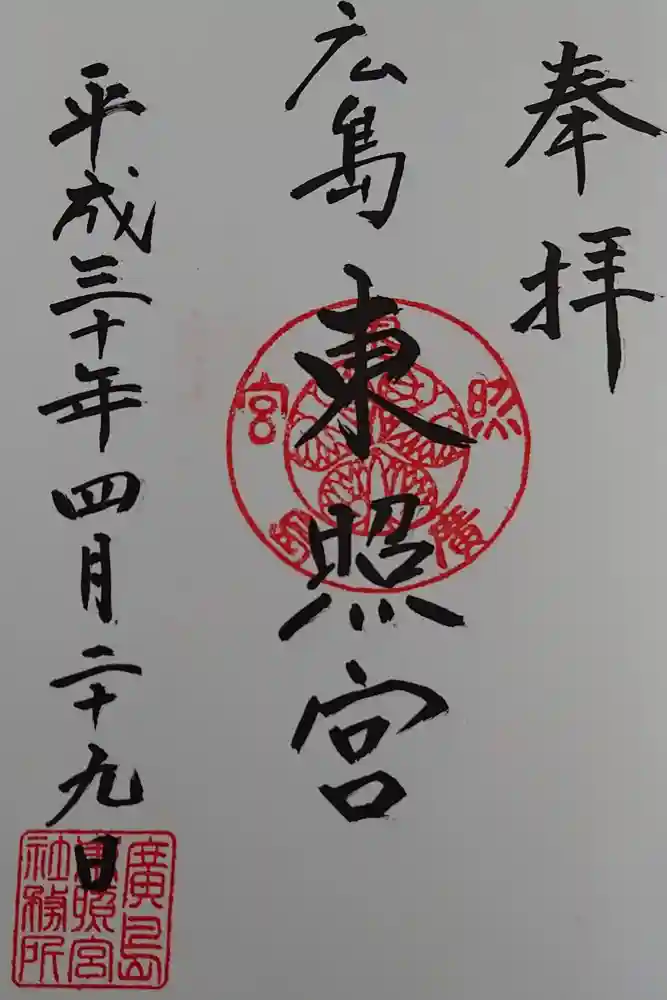 奉拝
広島東照宮
平成三十年四月二十九日
東照宮廣島
廣島東照宮社務所